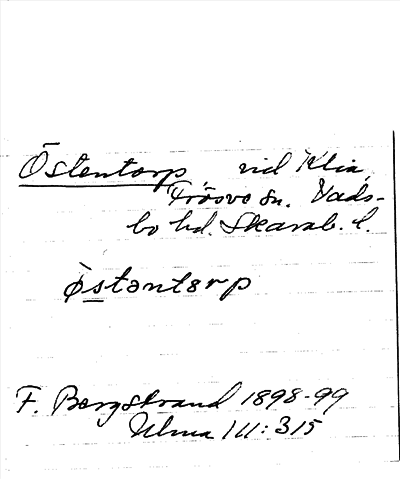 Östentorp, vid Klia,
Frösve sn. Vads-
bo hd. Skarab. l.
òstəntɔrp
F. Bergstrand 1898-99
Ulma 111:315